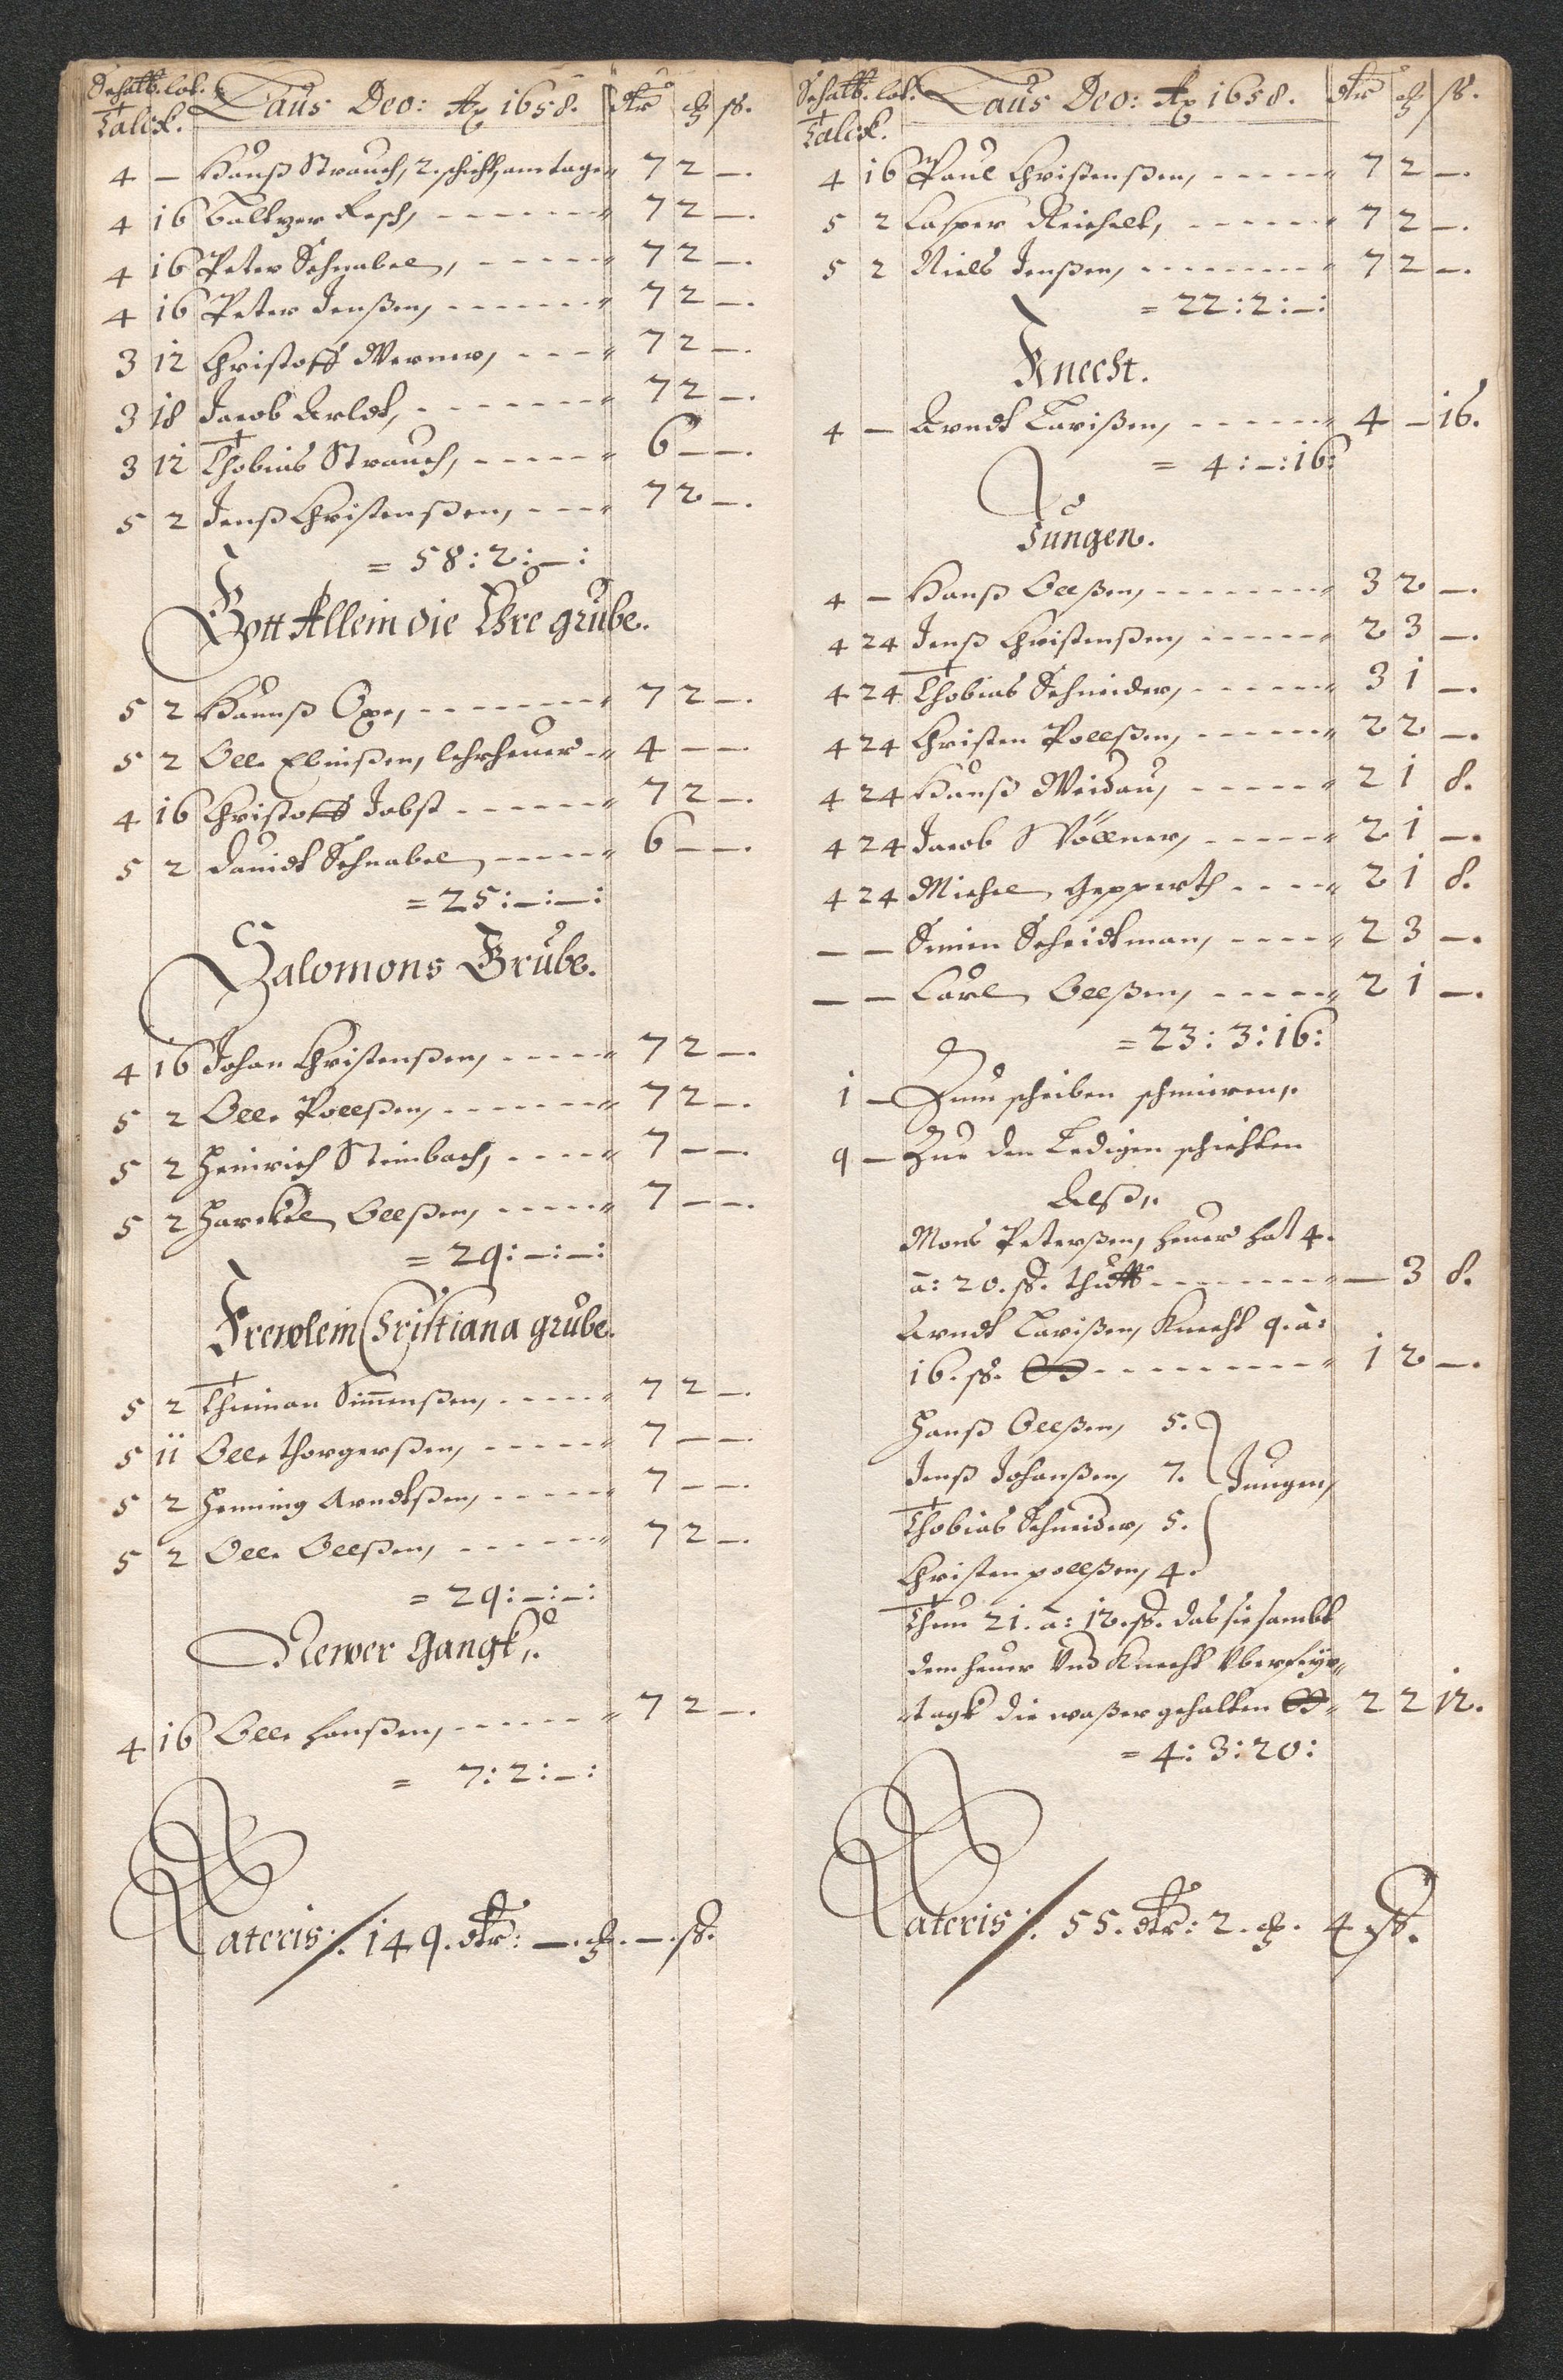 Schatt. lot.
Talck. Laus Deo: Ao 1658. dlr ꝗ ß.
4 — Hanß Strauch, 2. schicht, am tage 7 2 —.
4 16 Baltzer Resch, - - - - - - - 7 2 —.
4 16 Peter Schnabel, - - - - - 7 2 —.
4 16 Peter Jenßen, - - - - - - 7 2 —.
3 12 Christoff Werner, - - - - 7 2 —.
3 18 Jacob Arldt, - - - - - - - 7 2 —.
3 12 Thobias Strauch, - - - - - 6 — —.
5 2 Jenß Christenßen, - - - - 7 2 —.
= 58 : 2 : — :
Gott Allein die Ehre grube.
5 2 Hannß Oxe, - - - - - - - - 7 2 —.
5 2 Olle Elinßen, lehrheuer - 4 — —.
4 16 Christoff Jobst - - - - - - 7 2 —.
5 2 Davidt Schnabel - - - - - 6 — —.
= 25 : — : — :
Salomons Grube.
4 16 Johan Christenßen, - - - - - 7 2 —.
5 2 Olle Pollßen, - - - - - - - 7 2 —.
5 2 Heinrich Steinbach, - - - - 7 — —.
5 2 Harckel Ollßen, - - - - - 7 — —.
= 29 : — : — :
Frewlein Christiana grube.
5 2 Thiman Simenßen, - - - - - 7 2 —.
5 11 Olle thorgerßen, - - - - - 7 — —.
5 2 Henning Arndtßen, - - - - - 7 — —.
5 2 Olle Ollßen, - - - - - - 7 2 —.
= 29 : — : — :
Newer Gangk,.
4 16 Olle Hanßen, - - - - - - - 7 2 —.
= 7 : 2 : — :
Lateris ·/. 149. dlr : —. ꝗ. —. ß.
Schatt. lot.
Talck. Laus Deo: Ao 1658. dlr ꝗ ß.
4 16 Paul Christenßen, - - - - - 7 2 —.
5 2 Casper Reichelt, - - - - - - 7 2 —.
5 2 Niels Jenßen, - - - - - - - - 7 2 —.
= 22 : 2 : — :
Knecht.
4 — Arndt Larißen, - - - - - - 4 — 16.
= 4 : — : 16 :
Jungen.
4 — Hanß Ollßen, - - - - - - - 3 2 —.
4 24 Jenß Christenßen, - - - - - 2 3 —.
4 24 Thobias Schneider, - - - - - - 3 1 —.
4 24 Christen Pollßen, - - - - - - 2 2 —.
4 24 Hanß Weidau, - - - - - 2 1 8.
4 24 Jacob Wöllner, - - - - - 2 1 —.
4 24 Michel Gepperth - - - - 2 1 8.
— — Simen Scheidtman, - - - - 2 3 —.
— — Carl Ollßen, - - - - - 2 1 —.
= 23 : 3 : 16 :
1 — Zum scheiben schmieren,.
9 — Zue den Ledigen schichten
Alß,.
Mons Peterßen, heuer hat 4.
à : 20. ß. thutt - - - - - - - - — 3 8.
Arndt Larißen, Knecht 9. à :
16. ß. - - - - - - - - - - 1 2 —.
Hanß Ollßen, 5.
Jenß Johanßen, 7. Jungen,
Thobias Schneider, 5.
Christen pollßen, 4.
Thun 21. à : 12. ß. das sie sambt
dem heuer Und Knecht Uber feyer
tagk die waßer gehalten 2 2 12.
= 4 : 3 : 20 :
Lateris ·/. 55. dlr : 2. ꝗ. 4 ß.